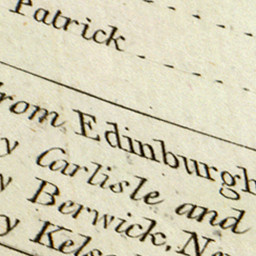 Patrick
from Edinburgh
by Carlisle and
by Berwick, Ne
by Kels